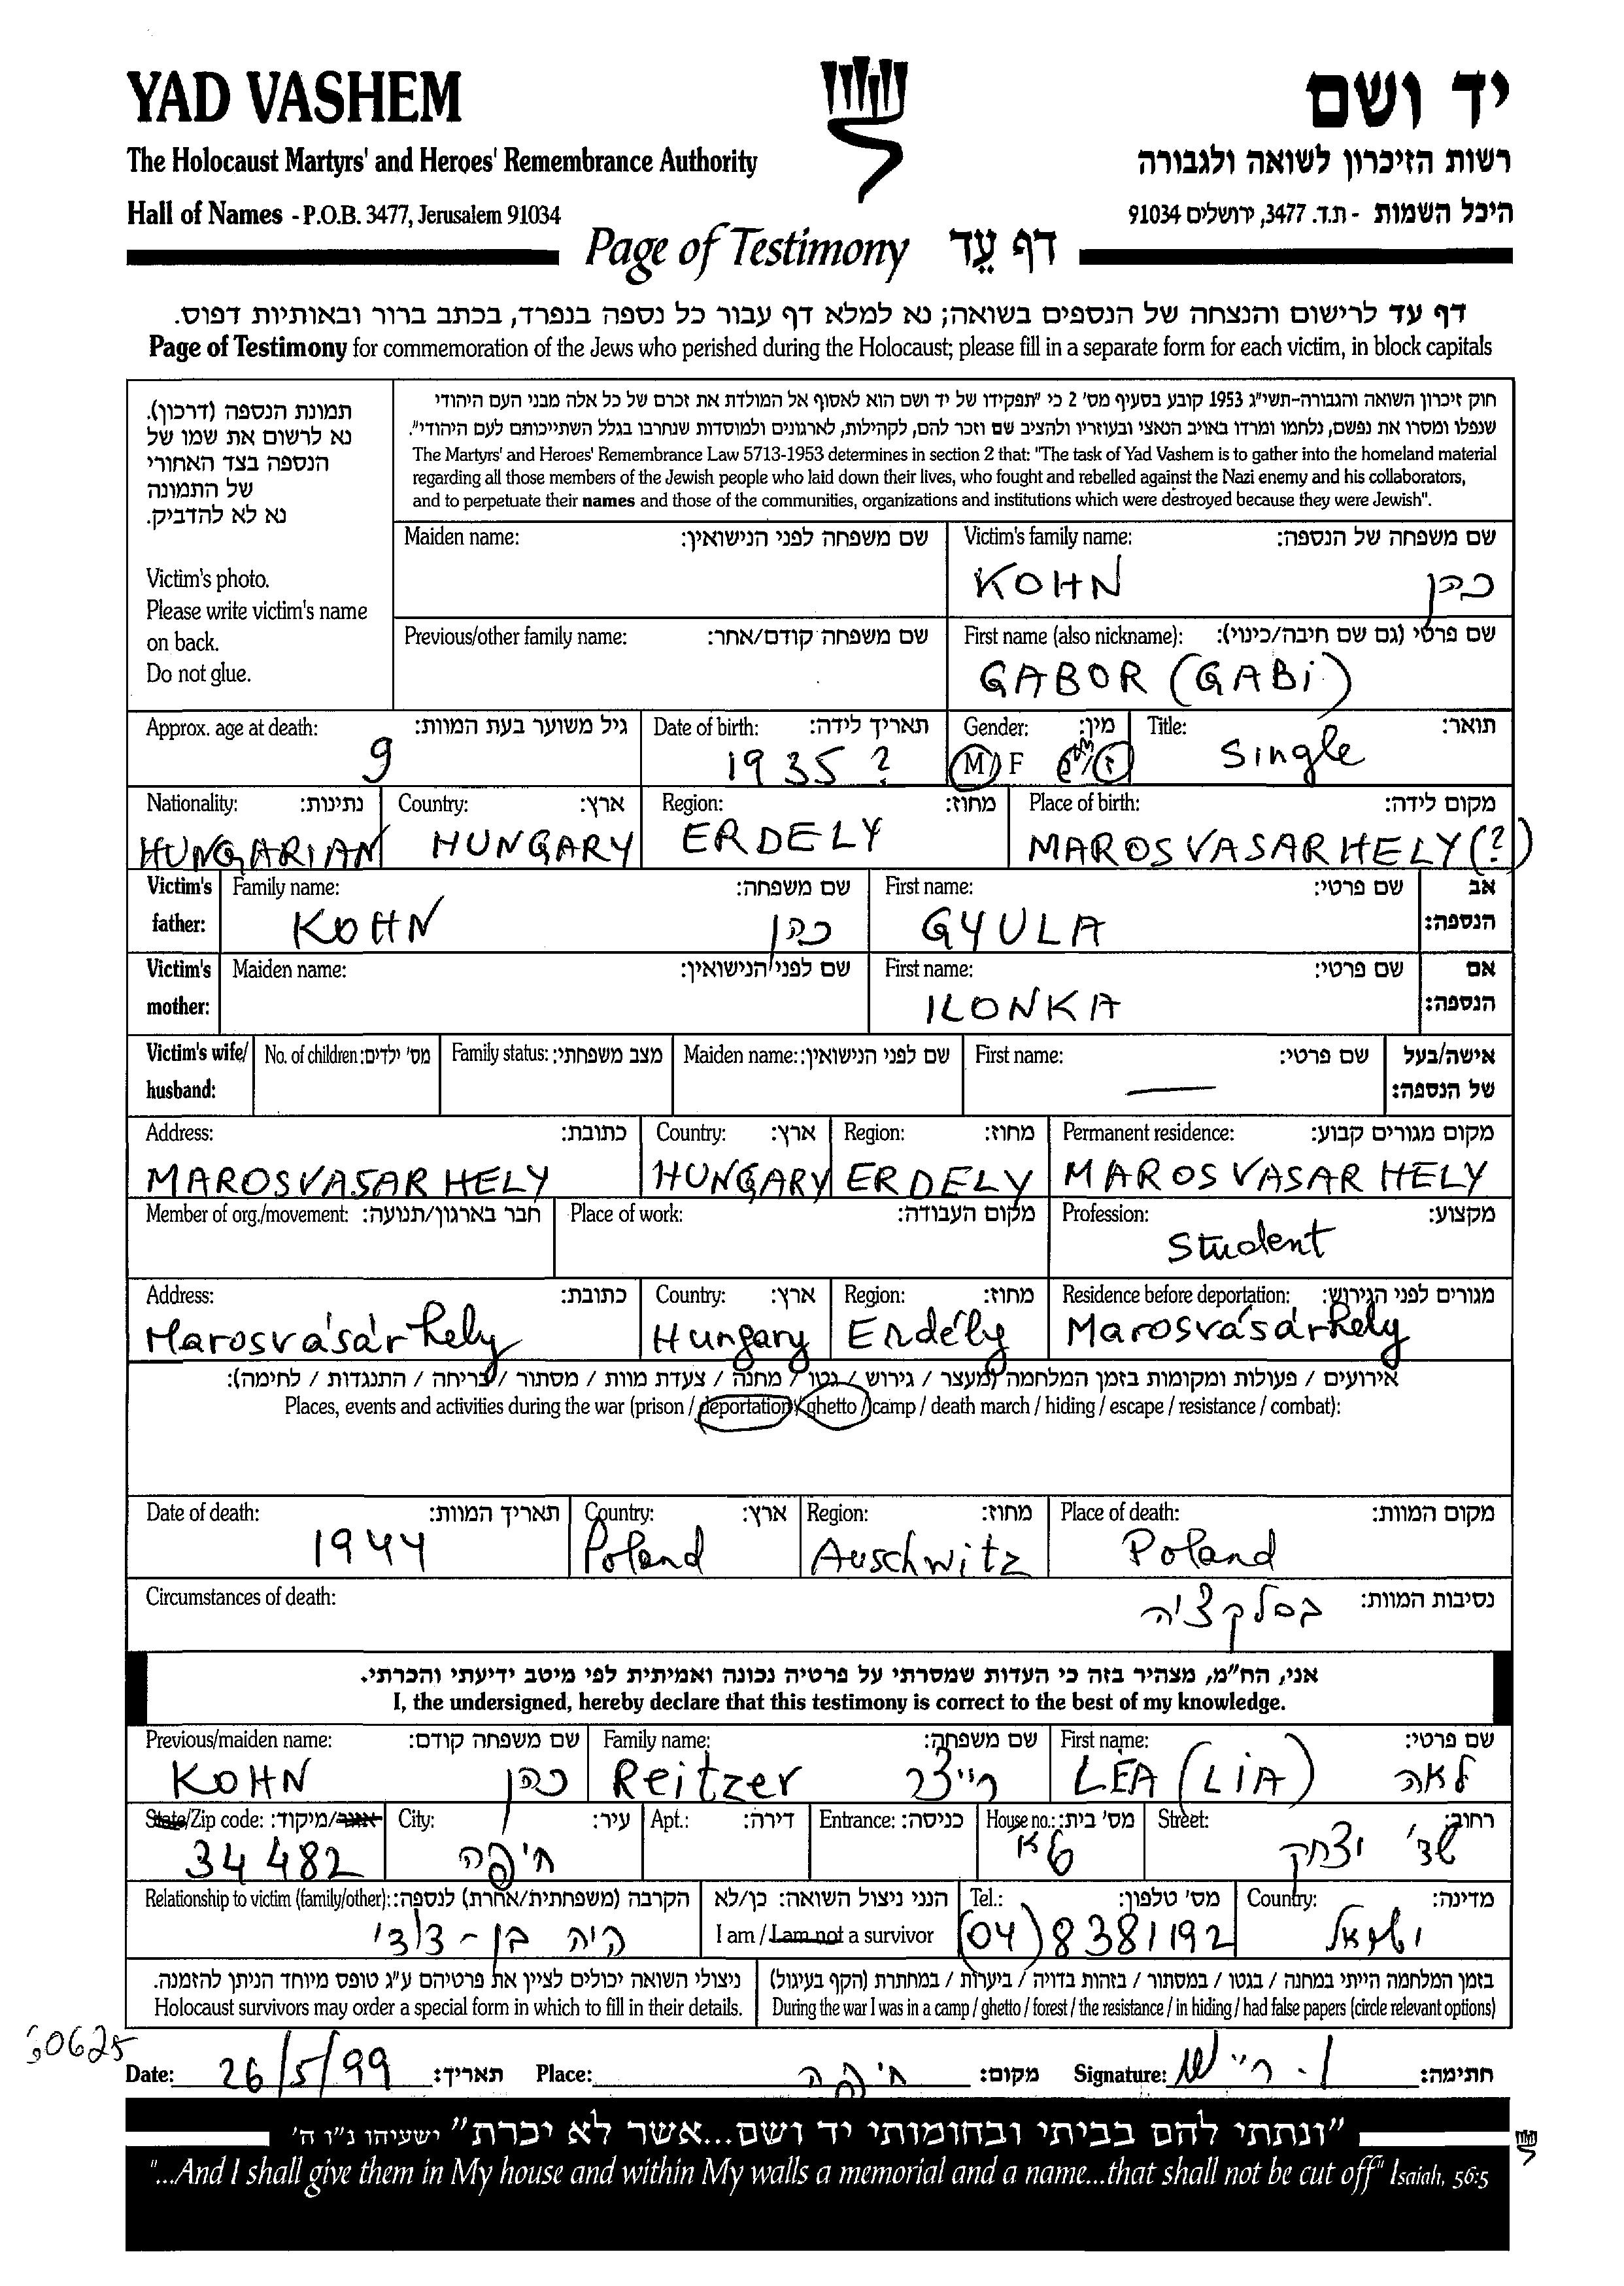 YAD VASHEM
יד ושם
The Holocaust Martyrs' and Heroes' Remembrance Authority
רשות הזיכרון לשואה ולגבורה
Hall of Names - P.O.B. 3477, Jerusalem 91034
היכל השמות - ת.ד. 3477, ירושלים 91034
Page of Testimony דף עֵד
דף עד לרישום והנצחה של הנספים בשואה; נא למלא דף עבור כל נספה בנפרד, בכתב ברור ובאותיות דפוס.
Page of Testimony for commemoration of the Jews who perished during the Holocaust; please fill in a separate form for each victim, in block capitals
תמונת הנספה (דרכון).
נא לרשום את שמו של
הנספה בצד האחורי
של התמונה
נא לא להדביק.
Victim's photo.
Please write victim's name
on back.
Do not glue.
חוק זיכרון השואה והגבורה-תשי"ג 1953 קובע בסעיף מס' 2 כי "תפקידו של יד ושם הוא לאסוף אל המולדת את זכרם של כל אלה מבני העם היהודי
שנפלו ומסרו את נפשם, נלחמו ומרדו באויב הנאצי ובעוזריו ולהציב שם וזכר להם, לקהילות, לארגונים ולמוסדות שנחרבו בגלל השתייכותם לעם היהודי".
The Martyrs' and Heroes' Remembrance Law 5713-1953 determines in section 2 that: "The task of Yad Vashem is to gather into the homeland material
regarding all those members of the Jewish people who laid down their lives, who fought and rebelled against the Nazi enemy and his collaborators,
and to perpetuate their names and those of the communities, organizations and institutions which were destroyed because they were Jewish".
Maiden name: שם משפחה לפני הנישואין:
Victim's family name: שם משפחה של הנספה:
KOHN כהן
Previous/other family name: שם משפחה קודם/אחר:
First name (also nickname): שם פרטי (גם שם חיבה/כינוי):
GABOR (GABi)
Approx. age at death: גיל משוער בעת המוות: Date of birth: תאריך לידה: Gender: מין: Title: תואר:
9 1935 ? M/F ז/נ Single
Nationality: נתינות: Country: ארץ: Region: מחוז: Place of birth: מקום לידה:
HUNGARIAN HUNGARY ERDELY MAROSVASARHELY (?)
Victim's father: Family name: שם משפחה: First name: שם פרטי: אב הנספה:
KOHN כהן GYULA
Victim's mother: Maiden name: שם לפני הנישואין: First name: שם פרטי: אם הנספה:
ILONKA
Victim's wife/husband: No. of children: מס' ילדים: Family status: מצב משפחתי: Maiden name: שם לפני הנישואין: First name: שם פרטי: אישה/בעל של הנספה:
—
Address: כתובת: Country: ארץ: Region: מחוז: Permanent residence: מקום מגורים קבוע:
MAROSVASARHELY HUNGARY ERDELY MAROSVASARHELY
Member of org./movement: חבר בארגון/תנועה: Place of work: מקום העבודה: Profession: מקצוע:
Student
Address: כתובת: Country: ארץ: Region: מחוז: Residence before deportation: מגורים לפני הגירוש:
Marosvásárhely Hungary Erdély Marosvásárhely
אירועים / פעולות ומקומות בזמן המלחמה (מעצר / גירוש / גטו / מחנה / צעדת מוות / מסתור / בריחה / התנגדות / לחימה):
Places, events and activities during the war (prison / deportation / ghetto / camp / death march / hiding / escape / resistance / combat):
Date of death: תאריך המוות: Country: ארץ: Region: מחוז: Place of death: מקום המוות:
1944 Poland Auschwitz Poland
Circumstances of death: נסיבות המוות:
בסלקציה
אני, הח"מ, מצהיר בזה כי העדות שמסרתי על פרטיה נכונה ואמיתית לפי מיטב ידיעתי והכרתי.
I, the undersigned, hereby declare that this testimony is correct to the best of my knowledge.
Previous/maiden name: שם משפחה קודם: Family name: שם משפחה: First name: שם פרטי:
KOHN כהן Reitzer רייצר LEA (LiA) לאה
State/Zip code: אזור/מיקוד: City: עיר: Apt.: דירה: Entrance: כניסה: House no.: מס' בית: Street: רחוב:
34482 חיפה 9א שד' יצחק
Relationship to victim (family/other): הקרבה (משפחתית/אחרת) לנספה: הנני ניצול השואה: כן/לא Tel.: מס' טלפון: Country: מדינה:
היה בן-דודי I am / I am not a survivor (04) 8381192 ישראל
ניצולי השואה יכולים לציין את פרטיהם ע"ג טופס מיוחד הניתן להזמנה.
Holocaust survivors may order a special form in which to fill in their details.
בזמן המלחמה הייתי במחנה / בגטו / במסתור / בזהות בדויה / ביערות / במחתרת (הקף בעיגול)
During the war I was in a camp / ghetto / forest / the resistance / in hiding / had false papers (circle relevant options)
Date: 26/5/99 תאריך: Place: חיפה מקום: Signature: חתימה:
"ונתתי להם בביתי ובחומותי יד ושם...אשר לא יכרת" ישעיהו נ"ו ה'
"...And I shall give them in My house and within My walls a memorial and a name...that shall not be cut off" Isaiah, 56:5